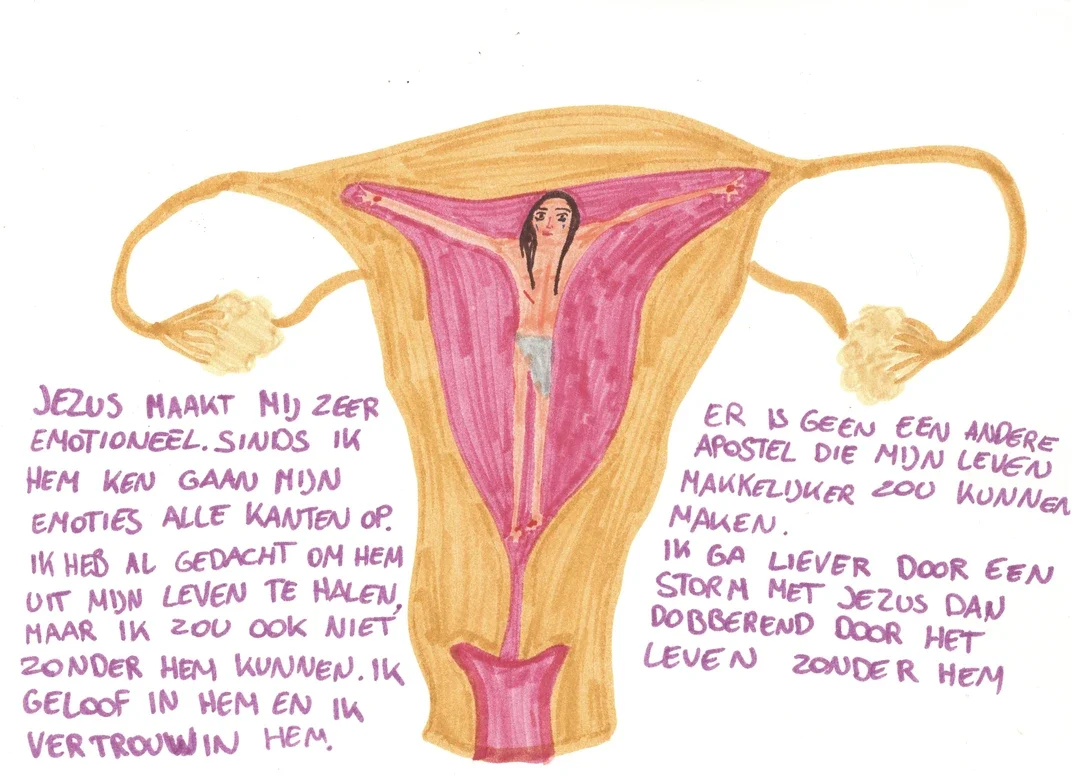 JEZUS MAAKT MIJ ZEER
EMOTIONEEL. SINDS IK
HEM KEN GAAN MIJN
EMOTIES ALLE KANTEN OP.
IK HEB AL GEDACHT OM HEM
UIT MIJN LEVEN TE HALEN,
MAAR IK ZOU OOK NIET
ZONDER HEM KUNNEN. IK
GELOOF IN HEM EN IK
VERTROUW IN HEM.
ER IS GEEN EEN ANDERE
APOSTEL DIE MIJN LEVEN
MAKKELIJKER ZOU KUNNEN
MAKEN.
IK GA LIEVER DOOR EEN
STORM MET JEZUS DAN
DOBBEREND DOOR HET
LEVEN ZONDER HEM